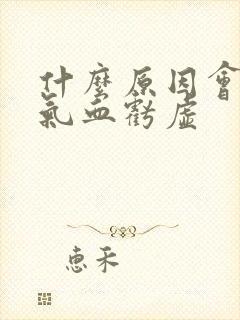 什麼原因會
氣血虧虛
惠禾